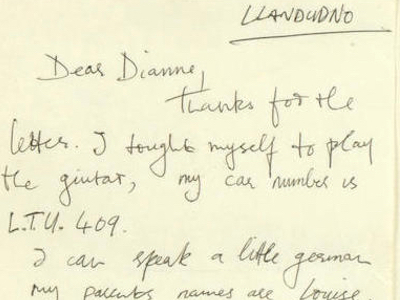 LLANDUDNO
Dear Dianne,
Thanks for the
letter. I tought myself to play
the giutar, my car number is
L.T.U. 409.
I can speak a little german
my parents names are Louise